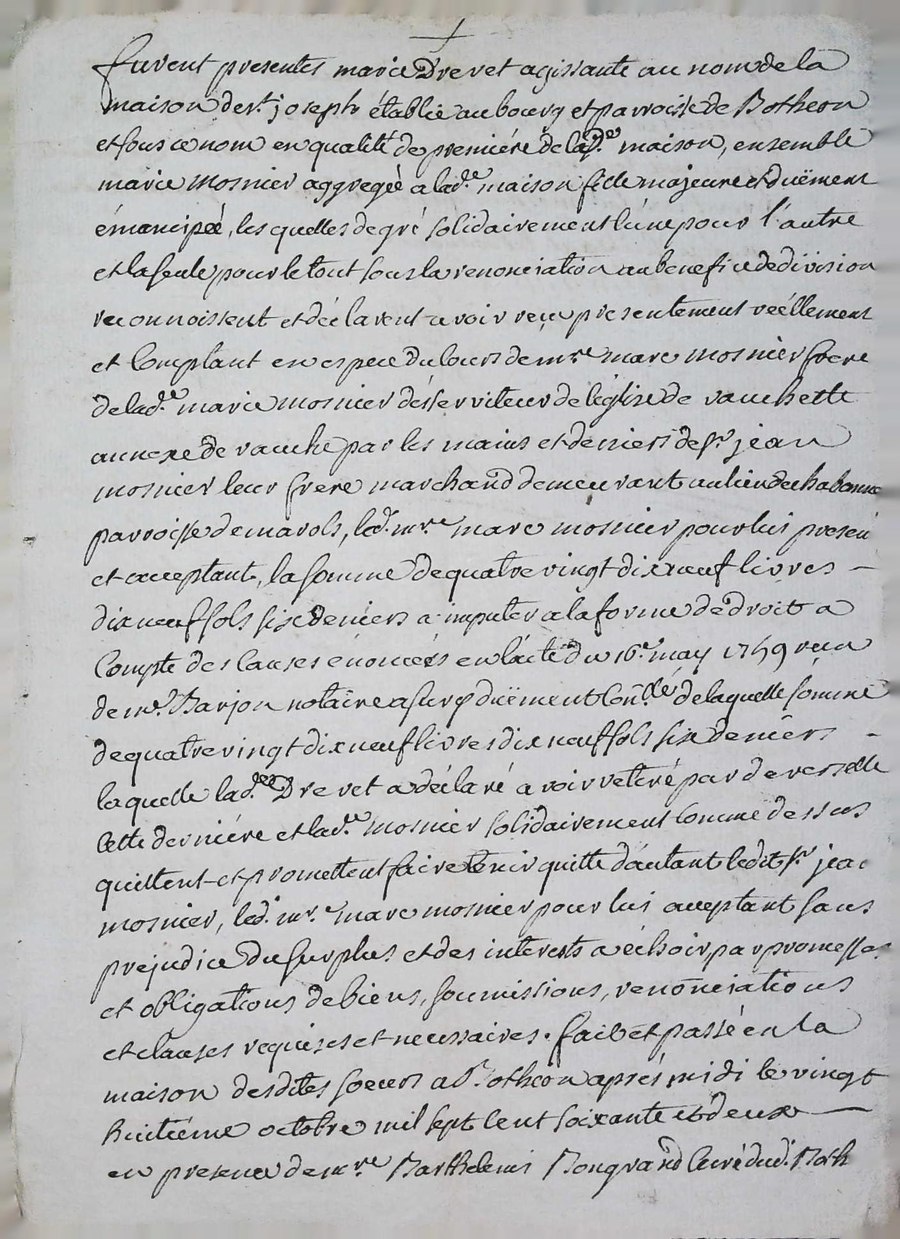 furent presentes marie Drevet agissante au nom de la
maison de st. joseph établie au bourg et parroisse de Botheon
et sous ce nom en qualité de premiére de lad.e maison, ensemble
marie mosnier aggregée a lad.e maison fille majeure et duëment
émancipée, les quelles de gré solidairement l'une pour l'autre
et la seule pour le tout sous la renonciation au benefice de division
reconnoissent et déclarent avoir reçu presentement réellement
et Comptant en espece du Cours de mre. marc mosnier frere
de lad.e marie mosnier désserviteur de l'églize de vauchette
annexe de vauche par les mains et deniers de sr. jean
mosnier leur frere marchand demeurant au lieu de chabanne
parroisse de marols, led. mre. marc mosnier pour lui present
et acceptant, la somme de quatre vingt dix neuf livres
dix neuf sols six deniers a imputer a la forme de droit a
Compte des Causes énoncées en l'acte du 16e. may 1759 reçu
de me. Barjon notaire duëment Con.lé de laquelle somme
de quatre vingt dix neuf livres dix neuf sols six deniers
laquelle lad.e Drevet a déclaré avoir retiré par devers elle
Cette derniére et lad.e mosnier solidairement Comme dessus
quittent et promettent faire tenir quitte d'autant ledit sr. jean
mosnier, led. mr. marc mosnier pour lui acceptant sans
prejudice du surplus et des interests a échoir, par promesses
et obligations de biens, soumissions, renonciations
et clauses requises et necessaires. fait et passé en la
maison desdites soeurs a Botheon aprés midi le vingt
huitiéme octobre mil sept Cent soixante et deux
en presence de mre. Barthelemi Bongrand Curé dud. Both